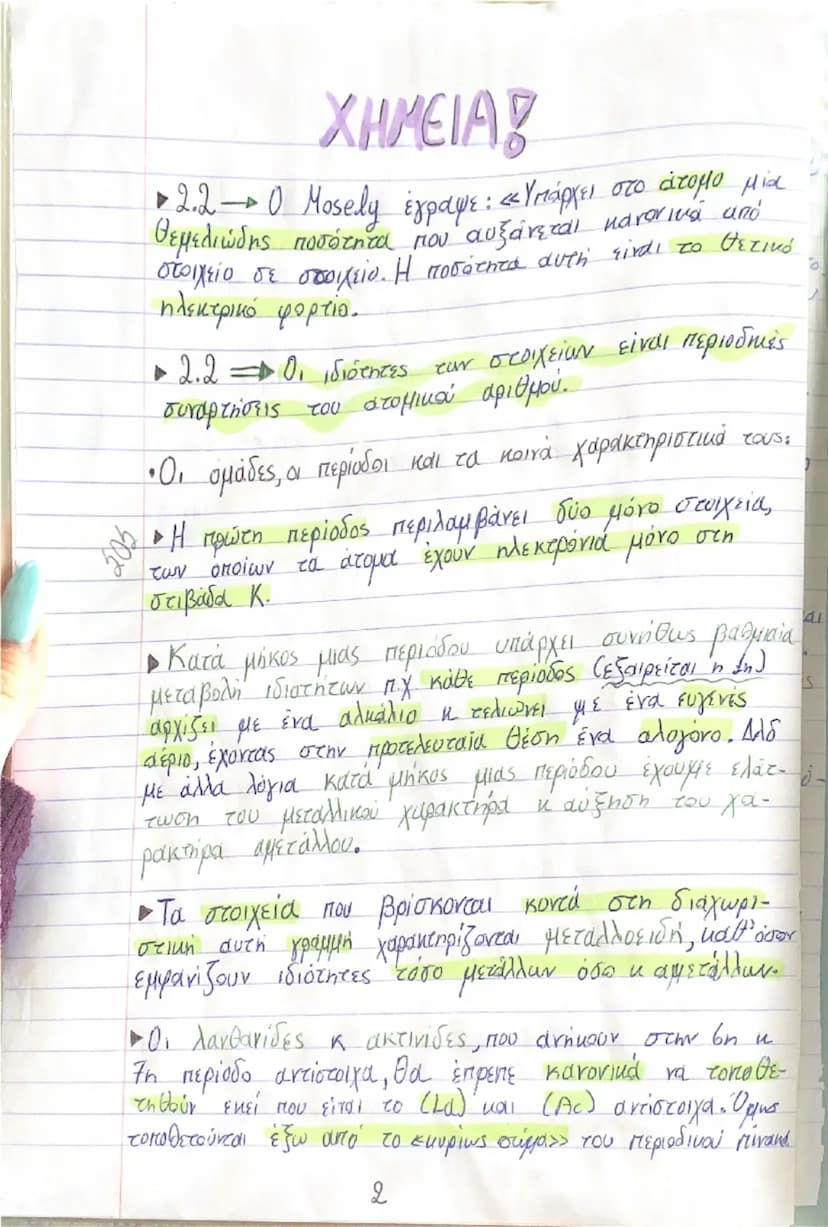 ΧΗΜΕΙΑ!
▶ 2.2 → Ο Mosely έγραψε: «Υπάρχει στο άτομο μία
θεμελιώδης ποσότητα που αυξάνεται κανονικά από
στοιχείο σε στοιχείο. Η ποσότητα αυτή είναι το θετικό
ηλεκτρικό φορτίο.
▶ 2.2 ⇒ Οι ιδιότητες των στοιχείων είναι περιοδικές
συναρτήσεις του ατομικού αριθμού.
•Οι ομάδες, οι περίοδοι και τα κοινά χαρακτηριστικά τους:
▶ Η πρώτη περίοδος περιλαμβάνει δύο μόνο στοιχεία,
των οποίων τα άτομα έχουν ηλεκτρόνια μόνο στη
στιβάδα Κ.
▶ Κατά μήκος μιας περιόδου υπάρχει συνήθως βαθμιαία
μεταβολή ιδιοτήτων π.χ κάθε περίοδος (εξαιρείται η 1η)
αρχίζει με ένα αλκάλιο κ τελιώνει με ένα ευγενές
αέριο, έχοντας στην προτελευταία θέση ένα αλογόνο. Δλδ
με άλλα λόγια κατά μήκος μιας περιόδου έχουμε ελάτ-
τωση του μεταλλικού χαρακτήρα κ αύξηση του χα-
ρακτήρα αμετάλλου.
▶ Τα στοιχεία που βρίσκονται κοντά στη διαχωρι-
στική αυτή γραμμή χαρακτηρίζονται μεταλλοειδή, καθ' όσον
εμφανίζουν ιδιότητες τόσο μετάλλων όσο κ αμετάλλων.
▶ Οι λανθανίδες κ ακτινίδες, που ανήκουν στην 6η κ
7η περίοδο αντίστοιχα, θα έπρεπε κανονικά να τοποθε-
τηθούν εκεί που είναι το (La) και (Ac) αντίστοιχα. Όμως
τοποθετούνται έξω από το «κυρίως σώμα» του περιοδικού πίνακα
2